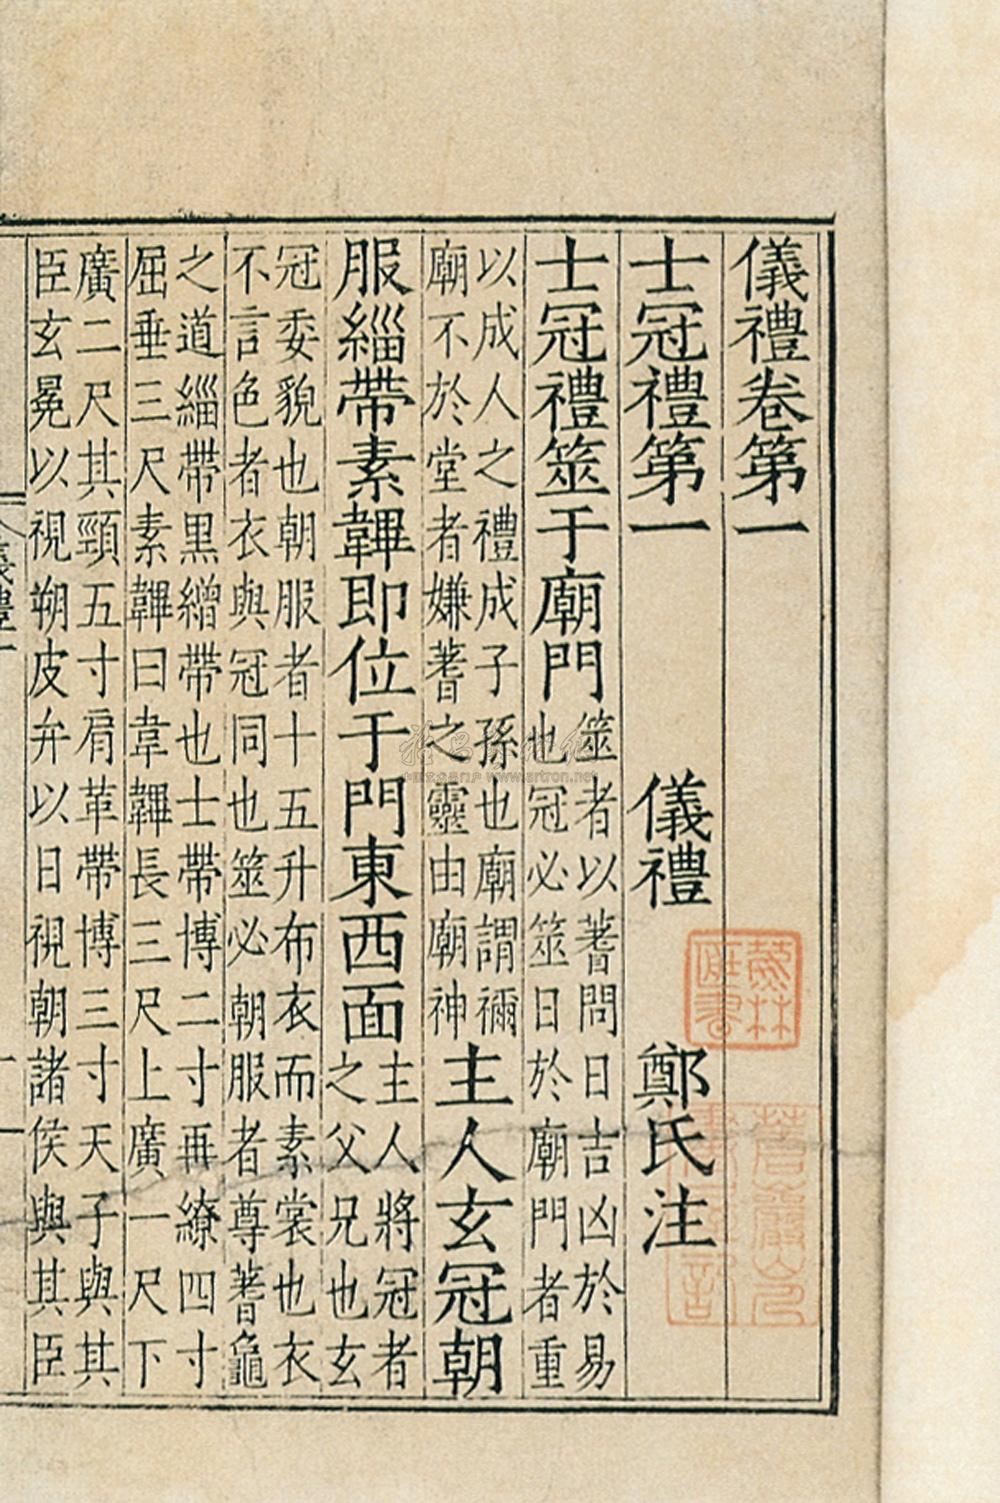 儀禮卷第一
士冠禮第一 儀禮 鄭氏注
士冠禮筮于廟門筮者以蓍問日吉凶於易也冠必筮日於廟門者重
以成人之禮成子孫也廟謂禰廟不於堂者嫌蓍之靈由廟神主人玄冠朝
服緇帶素韠即位于門東西面主人將冠者之父兄也玄
冠委貌也朝服者十五升布衣而素裳也衣不言色者衣與冠同也筮必朝服者尊蓍龜
之道緇帶黑繒帶也士帶博二寸再繚四寸屈垂三尺素韠曰韋韠長三尺上廣一尺下
廣二尺其頸五寸肩革帶博三寸天子與其臣玄冕以視朔皮弁以日視朝諸侯與其臣
儀禮一
一
www.artron.net